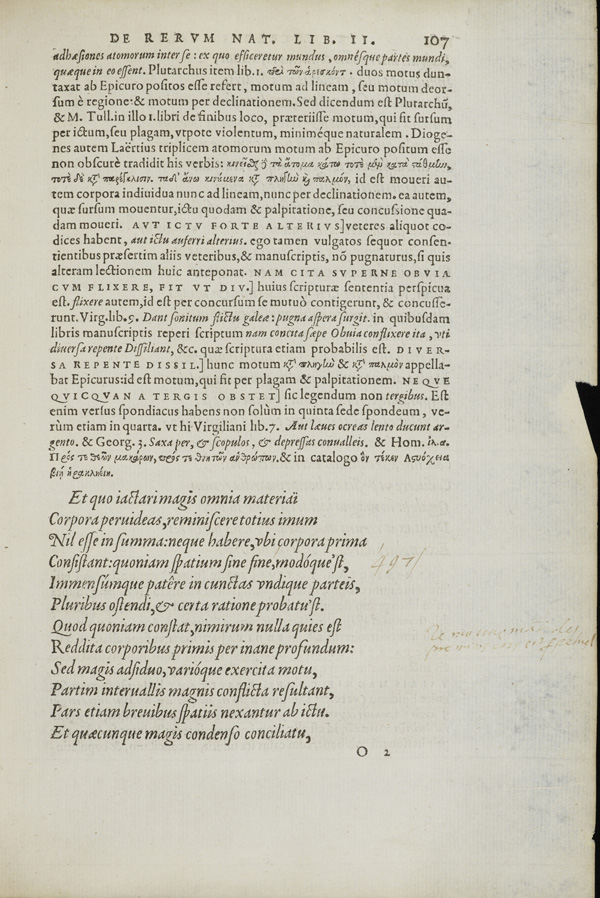 DE RERVM NAT. LIB. II. 107
adhæsiones atomorum inter se: ex quo efficeretur mundus, omnésque partes mundi,
quæque in eo essent. Plutarchus item lib. 1. duos motus dun-
taxat ab Epicuro positos esse refert, motum ad lineam, seu motum deor-
sum è regione: & motum per declinationem. Sed dicendum est Plutarchũ,
& M. Tull. in illo 1. libri de finibus loco, præteriisse motum, qui fit sursum
per ictum, seu plagam, vtpote violentum, miniméque naturalem. Dioge-
nes autem Laërtius triplicem atomorum motum ab Epicuro positum esse
non obscurè tradidit his verbis: κινεῖσθαι τὰ ἄτομα κάτω ποτὲ μὲν κατὰ στάθμην,
ποτὲ δὲ παρέγκλισιν. κινούμενα πληγὴν παλμόν, id est moueri au-
tem corpora indiuidua nunc ad lineam, nunc per declinationem. ea autem,
quæ sursum mouentur, ictu quodam & palpitatione, seu concussione qua-
dam moueri. AVT ICTV FORTE ALTERIVS] veteres aliquot co-
dices habent, aut ictu auferri alterius. ego tamen vulgatos sequor consen-
tientibus præsertim aliis veteribus, & manuscriptis, nō pugnaturus, si quis
alteram lectionem huic anteponat. NAM CITA SVPERNE OBVIA
CVM FLIXERE, FIT VT DIV.] huius scripturæ sententia perspicua
est. flixere autem, id est per concursum se mutuò contigerunt, & concusse-
runt. Virg. lib. 9. Dant sonitum flictu galeæ: pugna aspera surgit. in quibusdam
libris manuscriptis reperi scriptum nam concita sæpe Obuia conflixere ita, vti
diuersa repente Dissiliant, &c. quæ scriptura etiam probabilis est. DIVER-
SA REPENTE DISSIL.] hunc motum πληγὴν & παλμὸν appella-
bat Epicurus: id est motum, qui fit per plagam & palpitationem. NEQVE
QVICQVAN A TERGIS OBSTET] sic legendum non tergibus. Est
enim versus spondiacus habens non solùm in quinta sede spondeum, ve-
rùm etiam in quarta. vt hi Virgiliani lib. 7. Aut læues ocreas lento ducunt ar-
gento. & Georg. 3. Saxa per, & scopulos, & depressas conualleis. & Hom. ἰλ. α.
Πρός τε θεῶν μακάρων, πρός τε θνητῶν ἀνθρώπων. & in catalogo ὃν τέκεν Ἀστυόχεια
βίῃ ἡρακληείῃ.
Et quo iactari magis omnia materiaï
Corpora peruideas, reminiscere totius imum
Nil esse in summa: neque habere, vbi corpora prima
Consistant: quoniam spatium sine fine, modóque'st,
Immensúmque patêre in cunctas vndique parteis,
Pluribus ostendi, & certa ratione probatu'st.
Quod quoniam constat, nimirum nulla quies est
Reddita corporibus primis per inane profundum:
Sed magis adsiduo, varióque exercita motu,
Partim interuallis magnis conflicta resultant,
Pars etiam breuibus spatiis nexantur ab ictu.
Et quæcunque magis condenso conciliatu,
O 2
497/